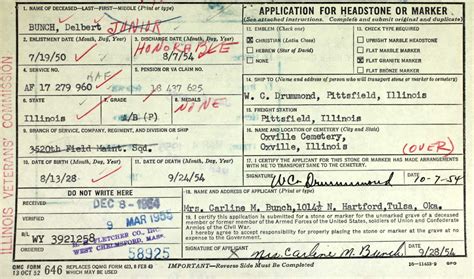 1. NAME OF DECEASED—LAST—FIRST—MIDDLE (Print or Type)
BUNCH, Delbert JUNIOR
APPLICATION FOR HEADSTONE OR MARKER
(See attached instructions. Complete and submit original and duplicate)
2. ENLISTMENT DATE (Month, Day, Year)
3. DISCHARGE DATE (Month, Day, Year)
7/19/50
HONORABLE
8/7/54
11. EMBLEM (Check one)
CHRISTIAN (Latin Cross)
HEBREW (Star of David)
NONE
12. CHECK TYPE REQUIRED
UPRIGHT MARBLE HEADSTONE
FLAT MARBLE MARKER
FLAT GRANITE MARKER
FLAT BRONZE MARKER
4. SERVICE NO.
5. PENSION OR VA CLAIM NO.
AF 17 279 960
18 437 625
14. SHIP TO (Name and address of person who will transport stone or marker to cemetery)
W. C. Drummond, Pittsfield, Illinois
6. STATE
7. GRADE
8. MEDALS
Illinois
NONE
15. FREIGHT STATION
Pittsfield, Illinois
9. BRANCH OF SERVICE, COMPANY, REGIMENT, AND DIVISION OR SHIP
3520th Field Maint. Sqd.
16. NAME AND LOCATION OF CEMETERY (City and State)
Oxville Cemetery,
Oxville, Illinois
(OVER)
10. DATE OF BIRTH (Month, Day, Year)
8/13/28
9/24/54
17. I CERTIFY THE APPLICANT FOR THIS STONE OR MARKER HAS MADE ARRANGEMENTS WITH ME TO TRANSPORT SAME TO THE CEMETERY.
WC Drummond
10-7-54
DO NOT WRITE HERE
DEC 8 - 1954
9 MAR 1955
WY 3921258
H. E. FLETCHER CO. INC.
WEST CHELMSFORD, MASS.
58925
18. NAME AND ADDRESS OF APPLICANT (Print or Type)
Mrs. Carline M. Bunch, 1014½ N. Hartford, Tulsa, Okla.
I certify this application is submitted for a stone or marker for the unmarked grave of a deceased member or former member of the Armed Forces of the United States, soldiers of Union and Confederate Armies of the Civil War.
Mrs Carline M. Bunch
9/28/54
QMC FORM
13 OCT 52
646
IMPORTANT—Reverse Side Must be Completed
ILLINOIS VETERANS' COMMISSION